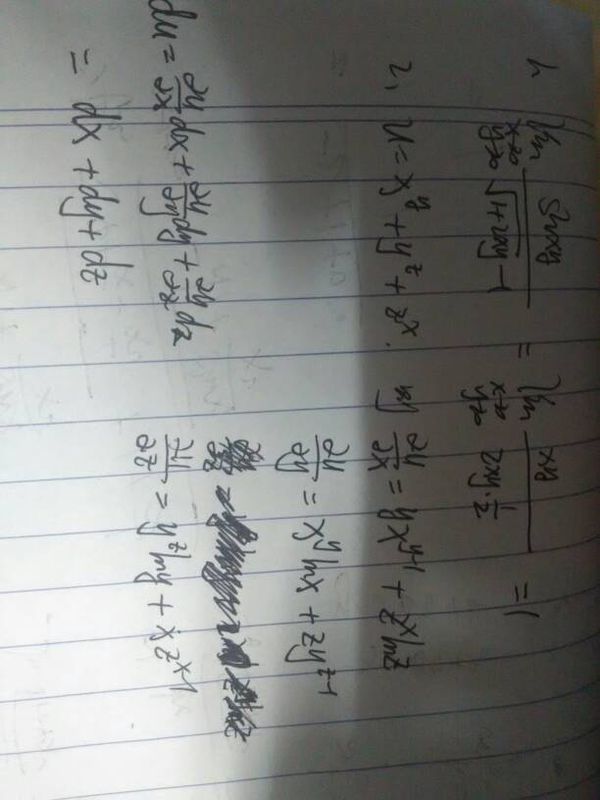 1、 lim_{x→0, y→0} sinxy / (√(1+2xy) -1) = lim_{x→0, y→0} xy / (2xy·1/2) = 1
2、 u = x^y + y^z + z^x. 则 ∂u/∂x = yx^{y-1} + z^x lnz
∂u/∂y = x^y lnx + zy^{z-1}
∂u/∂z = y^z lny + xz^{x-1}
du = ∂u/∂x dx + ∂u/∂y dy + ∂u/∂z dz
= dx + dy + dz